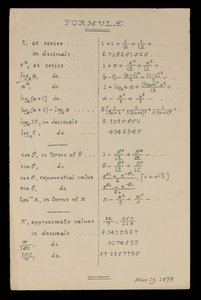 FORMULÆ.
e, as series . . . 1 + 1 + 1/2 + 1/3 + . . .
in decimals . . . 2.71828 1828 . .
eˣ, as series . . . 1 + x + x²/2 + x³/3 + . .
logₑ a, do. . . . (a-1) - (a-1)²/2 + (a-1)³/3 -
aˣ, do. . . .
logₑ(a+1) do. . . . a - a²/2 + a³/3 -
logₑ 10, in decimals . . . 2.3025851
do. . . . .4342945
cos θ, in terms of θ . . . 1 - θ²/2 + θ⁴/4 -
sin θ, do. . . . θ - θ³/3 + θ⁵/5 -
cos θ, exponential value
sin θ, do.
tan⁻¹ x, in terms of x . . . x - x³/3 + x⁵/5 -
π, approximate values . . . 22/7 , 355/113
in decimals . . . 3.1415927
π/180, do. . . . .0174533
180/π, do. . . . 57.2957795
Mar. 19. 1878.